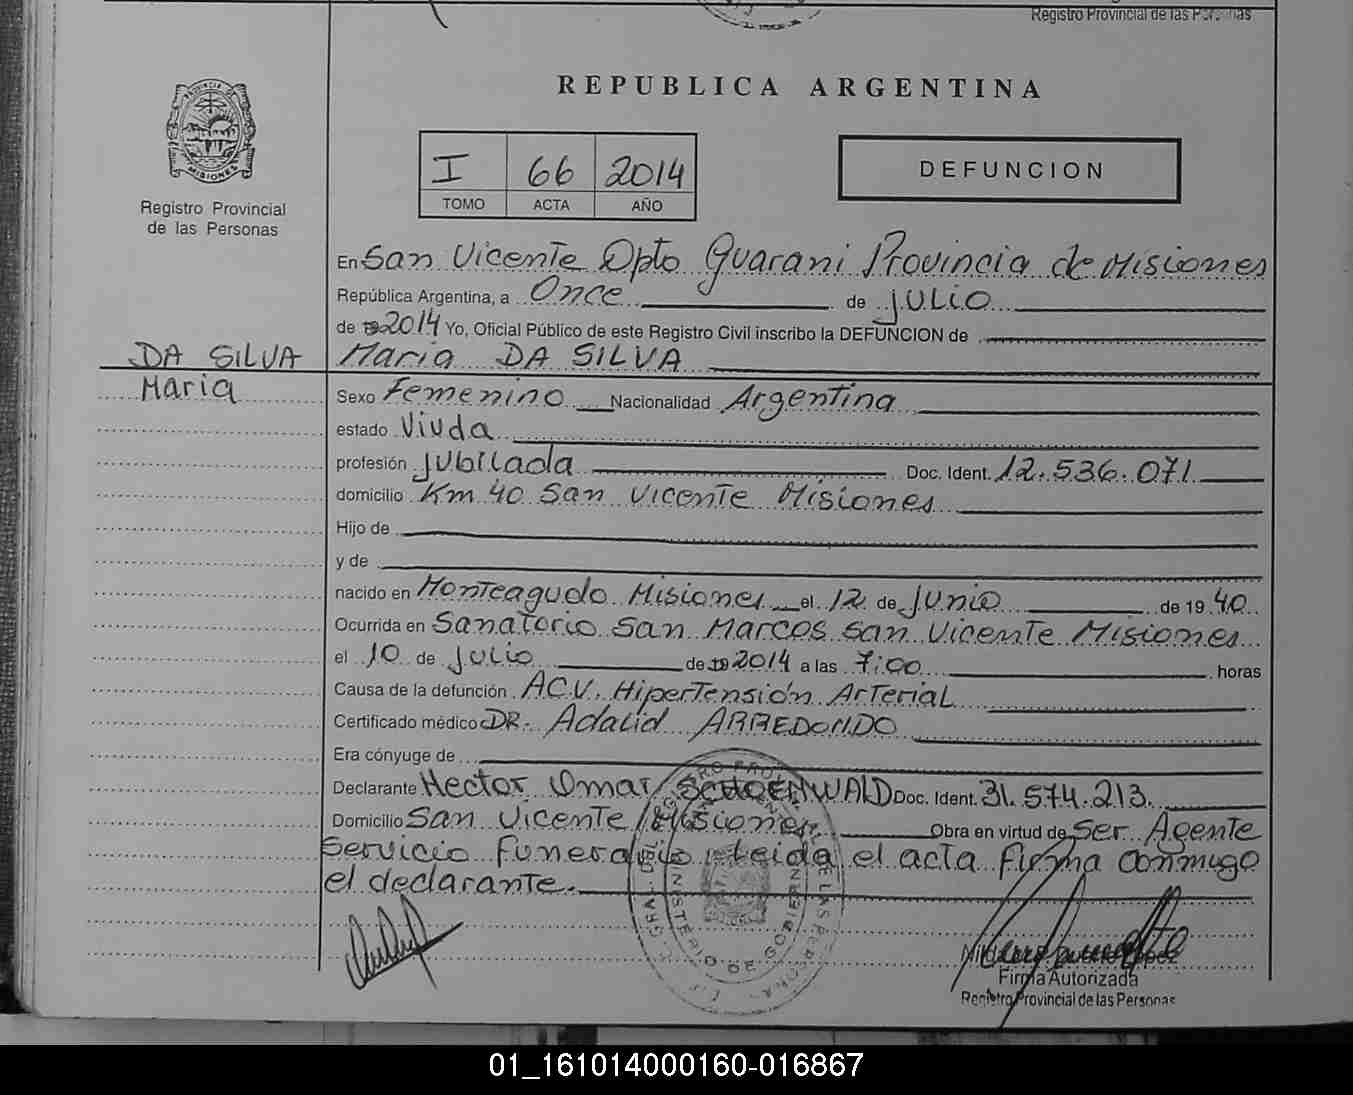 Registro Provincial de las Personas
REPUBLICA ARGENTINA
PROVINCIA DE
MISIONES
Registro Provincial
de las Personas
I 66 2014
TOMO ACTA AÑO
DEFUNCION
En San Vicente Dpto Guarani Provincia de Misiones
República Argentina, a Once de julio
de 19 2014 Yo, Oficial Público de este Registro Civil inscribo la DEFUNCION de
DA SILVA
Maria
Maria DA SILVA
Sexo Femenino Nacionalidad Argentina
estado Viuda
profesión jubilada Doc. Ident. 12.536.071
domicilio Km 40 San Vicente Misiones
Hijo de
y de
nacido en Monteagudo Misiones el 12 de junio de 19 40
Ocurrida en Sanatorio San Marcos San Vicente Misiones
el 10 de julio de 19 2014 a las 7:00 horas
Causa de la defunción ACV. Hipertensión Arterial
Certificado médico DR. Adalid ARREDONDO
Era cónyuge de
Declarante Hector Omar SCHOENWALD Doc. Ident. 31.574.213.
Domicilio San Vicente Misiones Obra en virtud de Ser Agente
Servicio Funerario Leida el acta firma conmigo
el declarante.
Firma Autorizada
Registro Provincial de las Personas
01_161014000160-016867